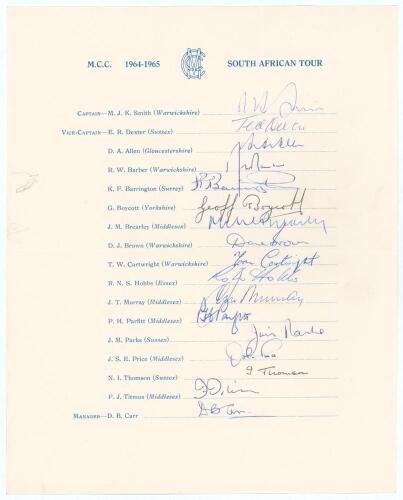 M.C.C. 1964-1965 SOUTH AFRICAN TOUR
CAPTAIN—M. J. K. Smith (Warwickshire)
VICE-CAPTAIN—E. R. Dexter (Sussex) Ted Dexter
D. A. Allen (Gloucestershire)
R. W. Barber (Warwickshire)
K. F. Barrington (Surrey)
G. Boycott (Yorkshire) Geoff Boycott
J. M. Brearley (Middlesex)
D. J. Brown (Warwickshire) Dave Brown
T. W. Cartwright (Warwickshire) Tom Cartwright
R. N. S. Hobbs (Essex) Robin Hobbs
J. T. Murray (Middlesex) John Murray
P. H. Parfitt (Middlesex)
J. M. Parks (Sussex) Jim Parks
J. S. E. Price (Middlesex)
N. I. Thomson (Sussex) I Thomson
F. J. Titmus (Middlesex)
MANAGER—D. B. Carr